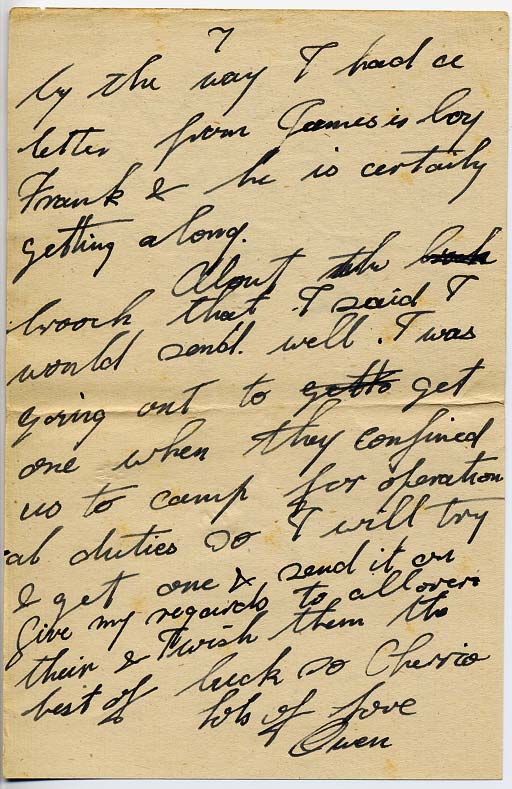 7
by the way I had a
letter from Jameses boy
Frank & he is certaily
getting along.
About the
brooch that I said I
would send. well. I was
going out to get
one when they confined
us to camp for operation
al duties so I will try
& get one & send it on
Give my regards to all over
their & I wish them the
best of luck so Cherrio
lots of love
Owen